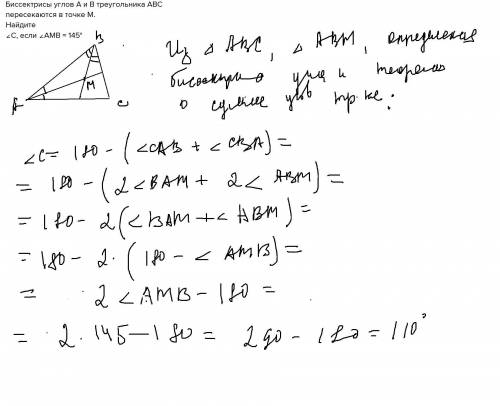 Биссектрисы углов А и В треугольника АВС
пересекаются в точке М.
Найдите
∠C, если ∠АМВ = 145°
B
M
A
C
Из △ ABC, △ ABM, определения
биссектрис угла и теорема
о сумме углов
∠C = 180 - (∠CAB + ∠CBA) =
= 180 - (2∠BAM + 2∠ABM) =
= 180 - 2(∠BAM + ∠ABM) =
= 180 - 2·(180 - ∠AMB) =
= 2∠AMB - 180 =
= 2·145 - 180 = 290 - 180 = 110°